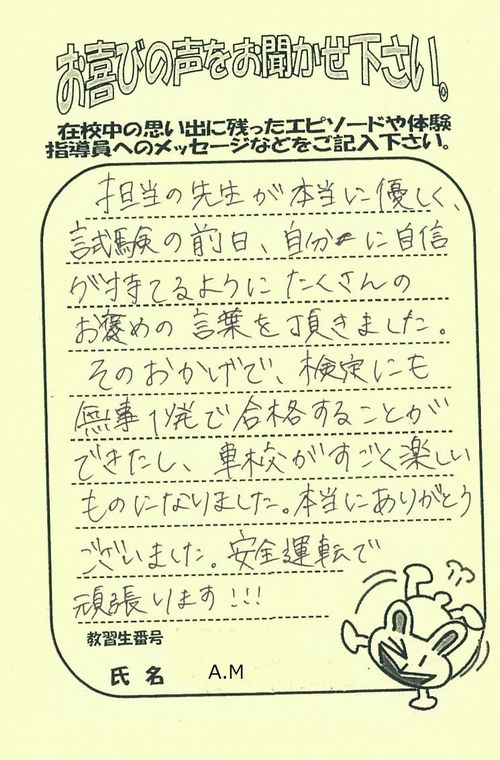 お喜びの声をお聞かせ下さい。
在校中の思い出に残ったエピソードや体験
指導員へのメッセージなどをご記入下さい。
担当の先生が本当に優しく、
試験の前日、自分に自信
が持てるようにたくさんの
お褒めの言葉を頂きました。
そのおかげで、検定にも
無事1発で合格することが
できたし、車校がすごく楽しい
ものになりました。本当にありがとう
ございました。安全運転で
頑張ります!!!
教習生番号
氏名 A.M